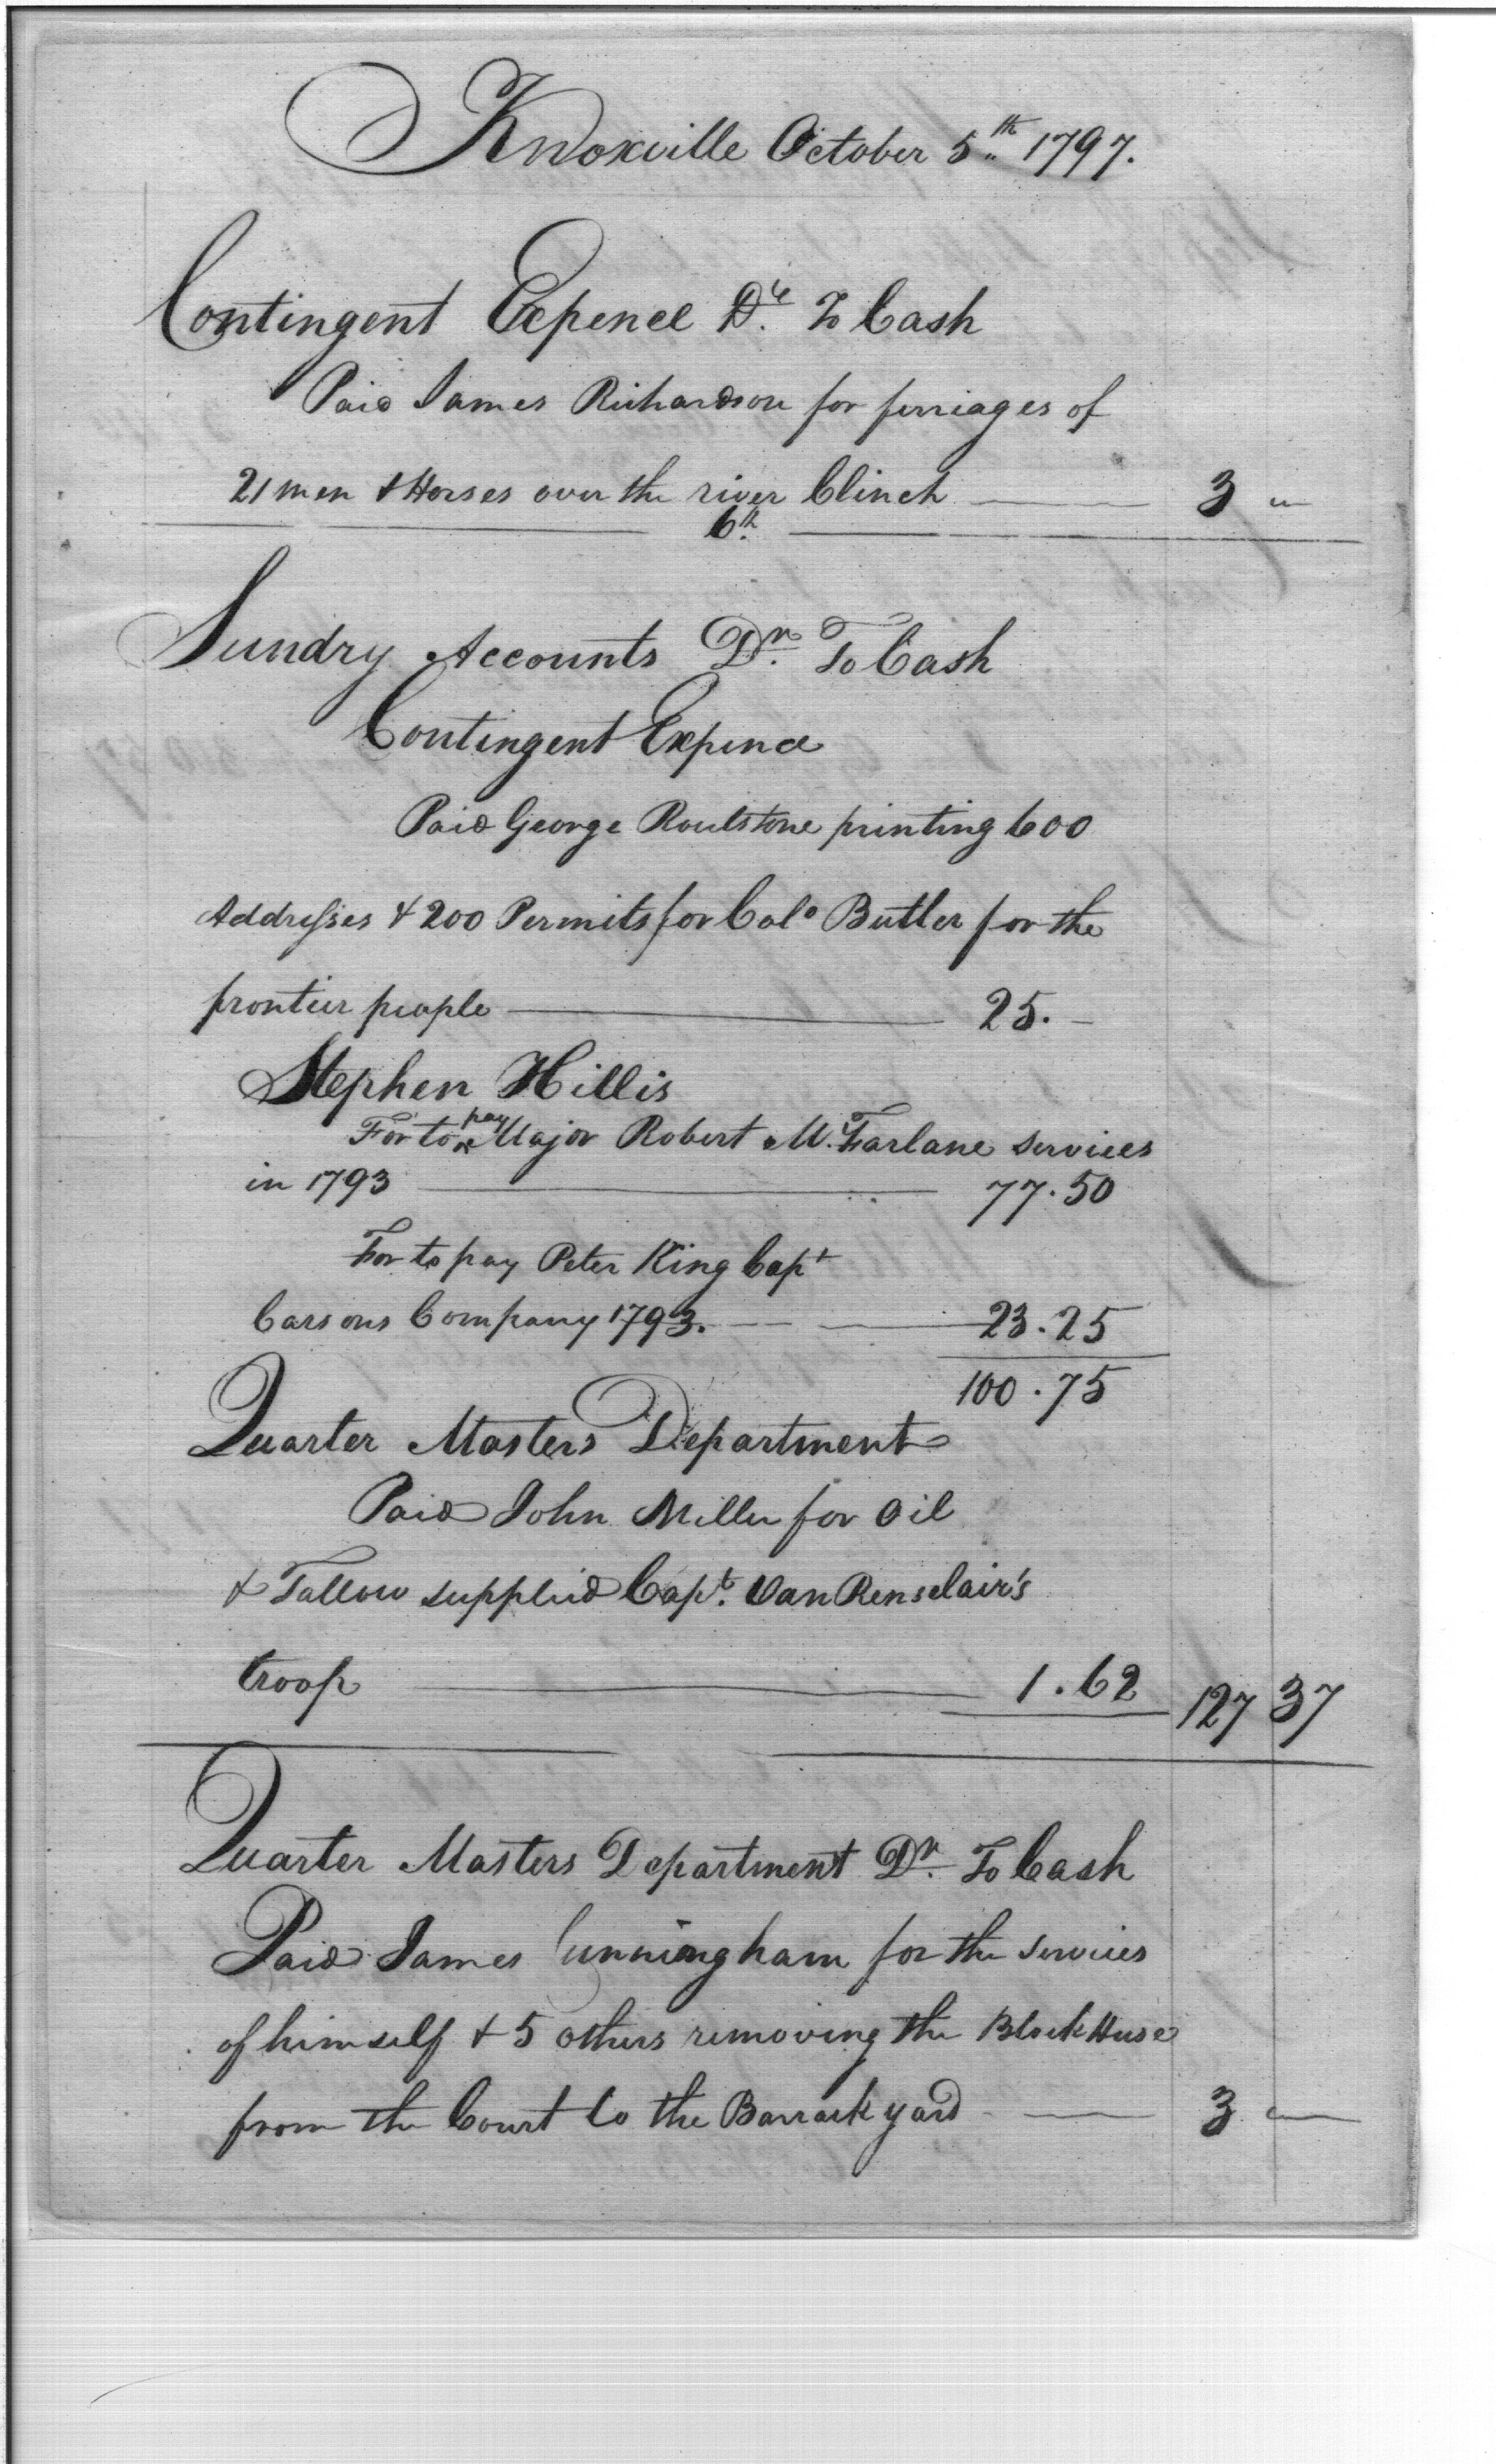 Knoxville October 5th 1797.
Contingent Expence Dr. To Cash
Paid James Richardson for ferriages of
21 men & Horses over the river Clinch 3 "
6th
Sundry Accounts Dr. To Cash
Contingent Expence
Paid George Roulstone printing 600
Addresses & 200 Permits for Colo Butler for the
frontier people 25. -
Stephen Hillis
For to pay Major Robert McFarlane services
in 1793 77.50
For to pay Peter King Capt
Carsons Company 1793. 23.25
100.75
Quarter Masters Department
Paid John Miller for Oil
& Tallow supplied Capt. Van Renselair's
troop 1.62 127 37
Quarter Masters Department Dr. To Cash
Paid James Cunningham for the services
of himself & 5 others removing the Block Huse
from the Court to the Barrack yard 3 "